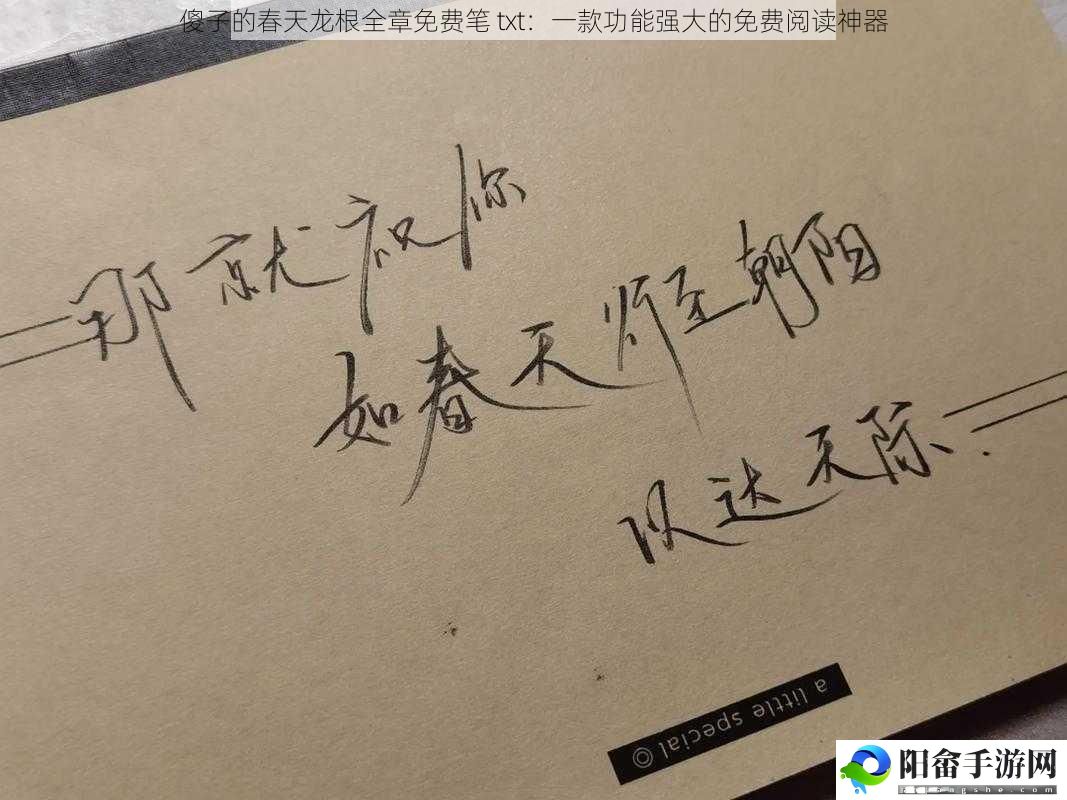 傻子的春天龙根全章免费笔 txt：一款功能强大的免费阅读神器
那就祝你
如春天 所至朝阳
以达天际、.
a little special ©
阳畲手游网